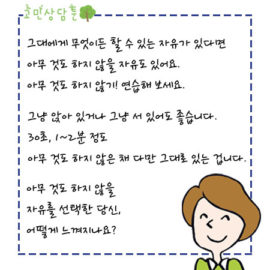 초면상담톤
그대에게 무엇이든 할 수 있는 자유가 있다면
아무 것도 하지 않을 자유도 있어요.
아무 것도 하지 않기! 연습해 보세요.
그냥 앉아 있거나 그냥 서 있어도 좋습니다.
30초, 1~2분 정도
아무 것도 하지 않은 채 다만 그대로 있는 겁니다.
아무 것도 하지 않을
자유를 선택한 당신,
어떻게 느껴지나요?